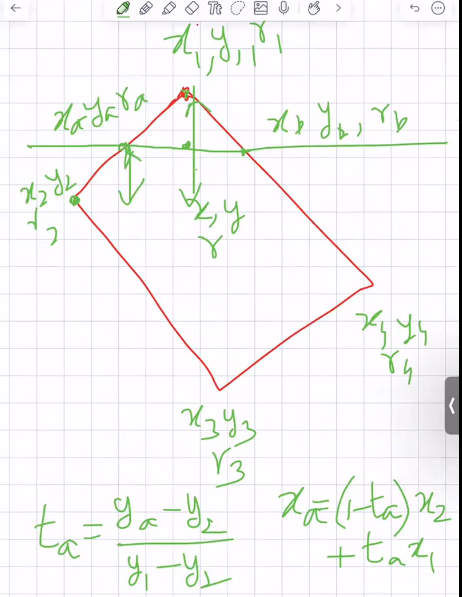 x₁, y₁, r₁
xₐ yₐ rₐ
x_b y_b, r_b
x₂ y₂
r₂
x, y
r
x₄ y₄
r₄
x₃ y₃
r₃
tₐ = (yₐ - y₂) / (y₁ - y₂)
xₐ = (1-tₐ) x₂
+ tₐ x₁